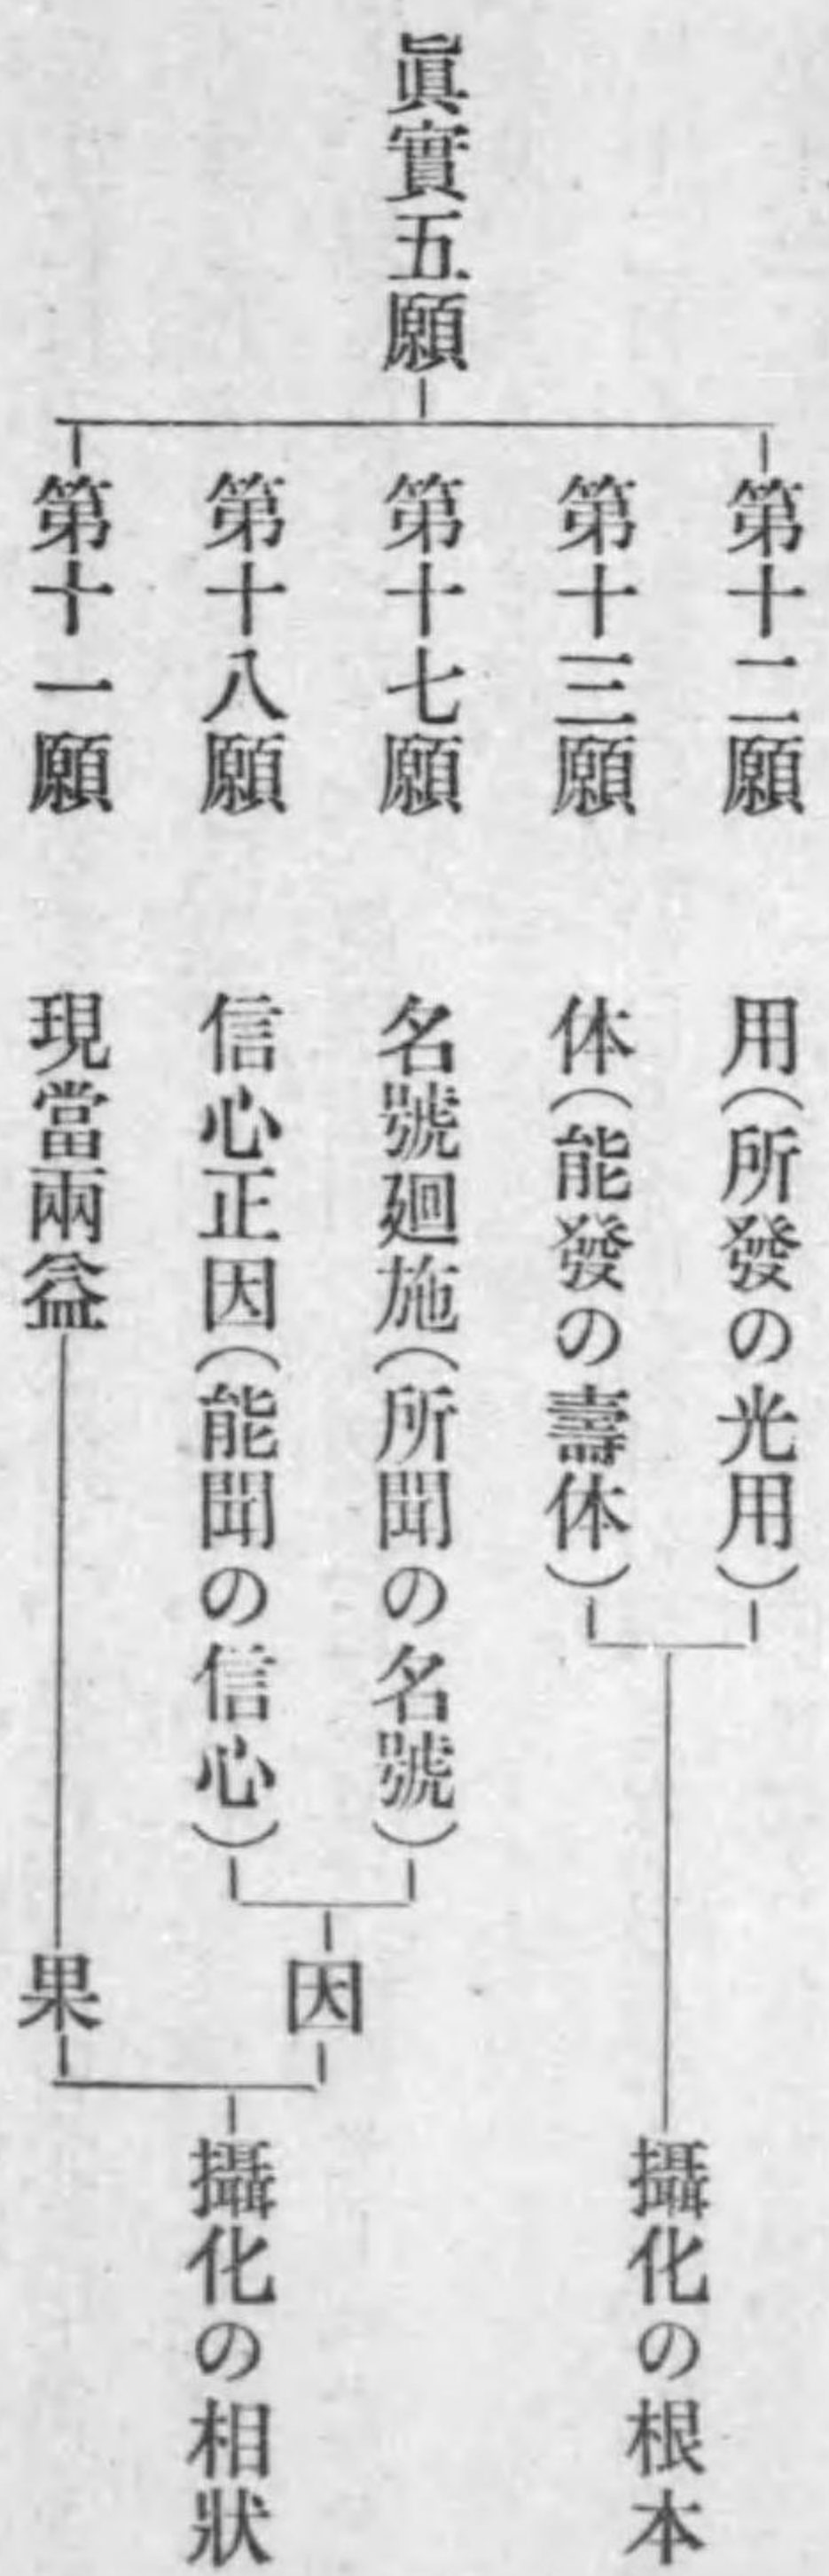 眞實五願
第十二願
用(所發の光用)
第十三願
体(能發の壽体)
攝化の根本
第十七願
名號廻施(所聞の名號)
第十八願
信心正因(能聞の信心)
因
第十一願
現當兩益
果
攝化の相狀